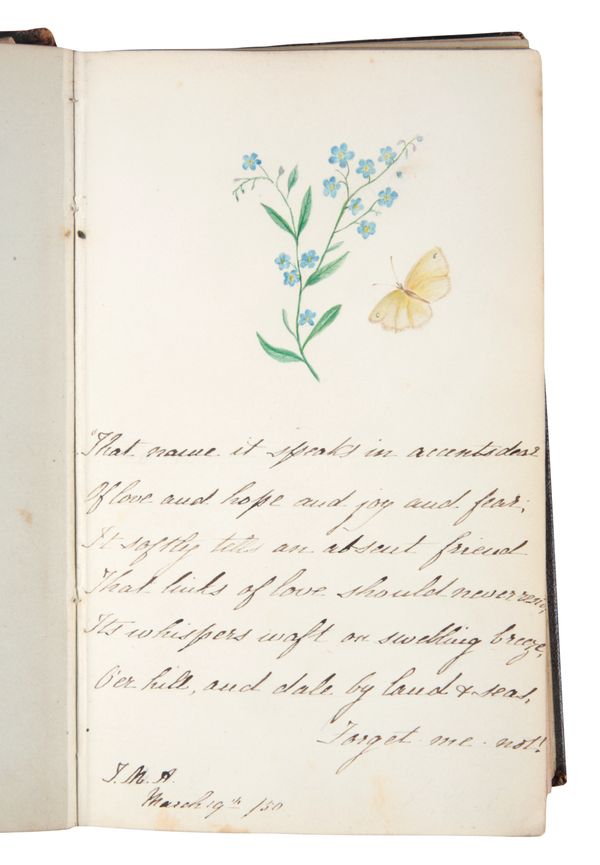 "That name it speaks in accents dear
Of love and hope and joy and fear;
It softly tells an absent friend
That links of love should never rend,
Its whispers waft on swelling breeze,
O'er hill, and dale by land & seas,
Forget me not!
March 19th /50